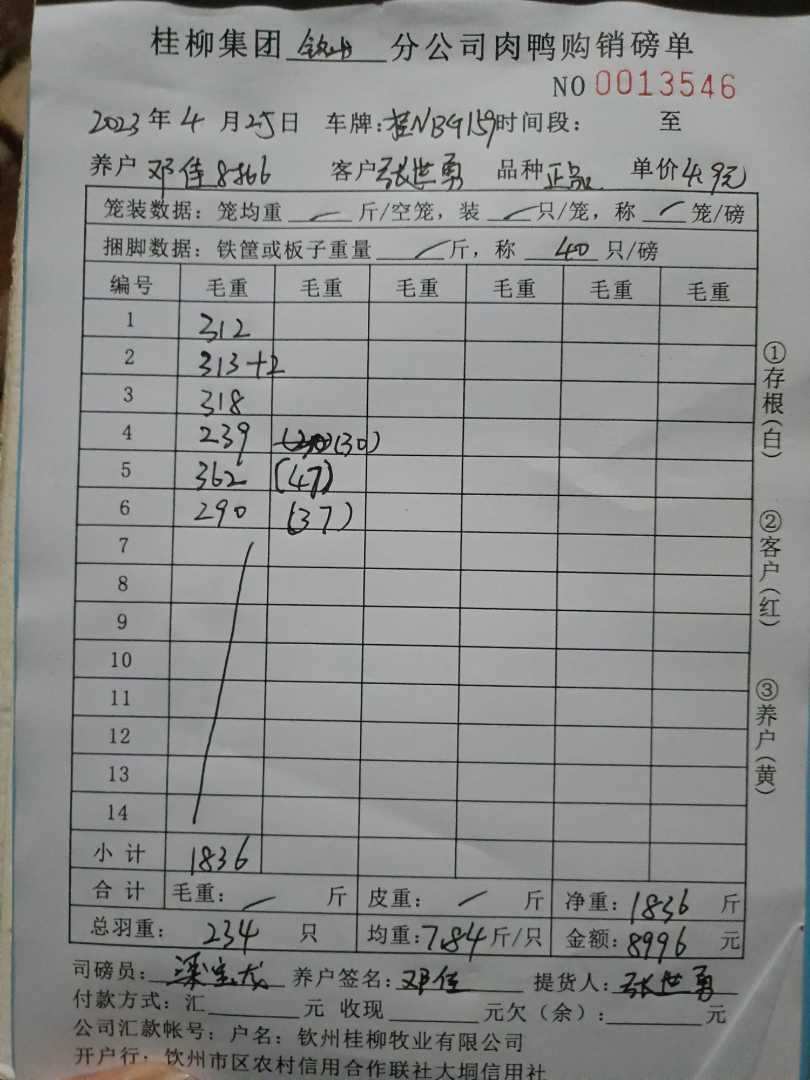 桂柳集团 钦州 分公司肉鸭购销磅单
NO 0013546
2023年4月25日 车牌:桂NBG159 时间段: 至
养户 邓佳8366 客户 张世勇 品种 正品 单价 4.9元
笼装数据:笼均重 斤/空笼,装 只/笼,称 笼/磅
捆脚数据:铁筐或板子重量 斤,称 40 只/磅
编号 毛重 毛重 毛重 毛重 毛重 毛重
1 312
2 313+2
3 318
4 239 (30)
5 362 (47)
6 290 (37)
7
8
9
10
11
12
13
14
小计 1836
合计 毛重: 斤 皮重: 斤 净重: 1836 斤
总羽重: 234 只 均重: 7.84 斤/只 金额: 8996 元
司磅员: 梁宝龙 养户签名: 邓佳 提货人: 张世勇
付款方式:汇 元 收现 元欠(余): 元
公司汇款帐号:户名:钦州桂柳牧业有限公司
开户行:钦州市区农村信用合作联社大垌信用社
①存根(白)
②客户(红)
③养户(黄)